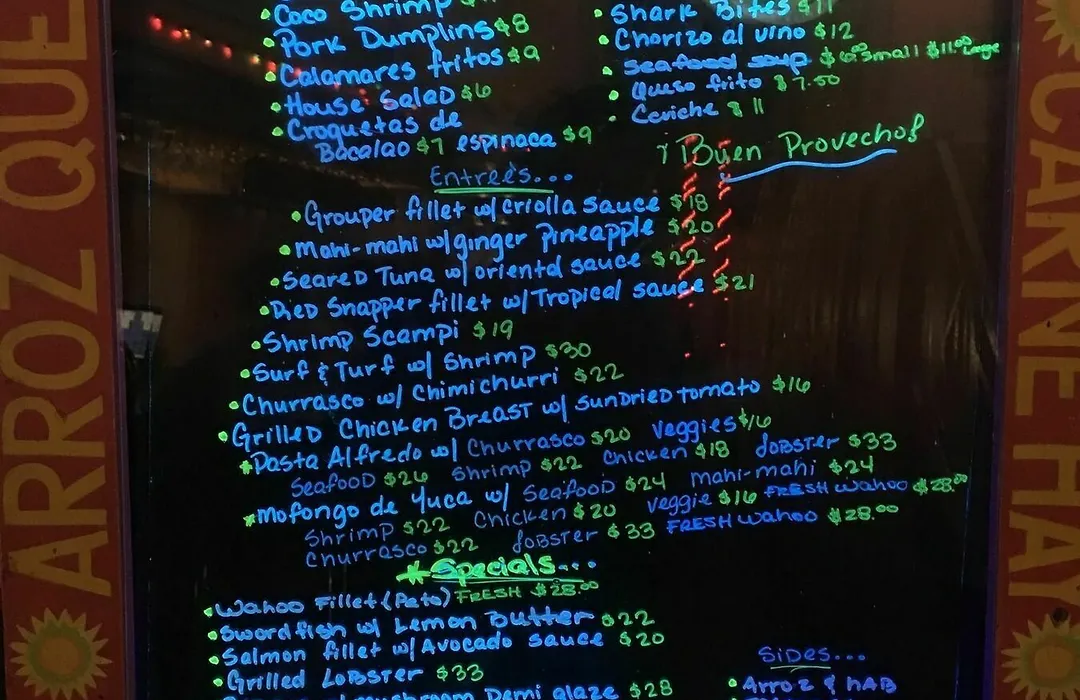 ARROZ QUE
CARNE HAY
Coco Shrimp
Pork Dumplins $8
Calamares fritos $9
House Salad $6
Croquetas de
Bacalao $7 espinaca $9
Shark Bites $11
Chorizo al vino $12
Seafood soup $6.00 small $11.00 Large
Queso frito $7.50
Ceviche $11
¡Buen Provecho!
Entreés...
Grouper fillet w/ criolla sauce $18
Mahi-mahi w/ginger pineapple $20
Seared Tuna w/ oriental sauce $22
Red Snapper fillet w/Tropical sauce $21
Shrimp Scampi $19
Surf & Turf w/ Shrimp $30
Churrasco w/ Chimichurri $22
Grilled Chicken Breast w/ sundried tomato $16
*Pasta Alfredo w/ Churrasco $20 Veggies $16
Seafood $26 Shrimp $22 Chicken $18 Lobster $33
*Mofongo de Yuca w/ Seafood $24 Mahi-mahi $24
Shrimp $22 Chicken $20 veggie $16 FRESH Wahoo $28.00
Churrasco $22 Lobster $33 FRESH Wahoo $28.00
*Specials...
Wahoo Fillet (Peto) FRESH $28.00
Swordfish w/ Lemon Butter $22
Salmon fillet w/ Avocado sauce $20
Grilled Lobster $33
Mushroom Demi glaze $28
Sides...
Arroz & HAB